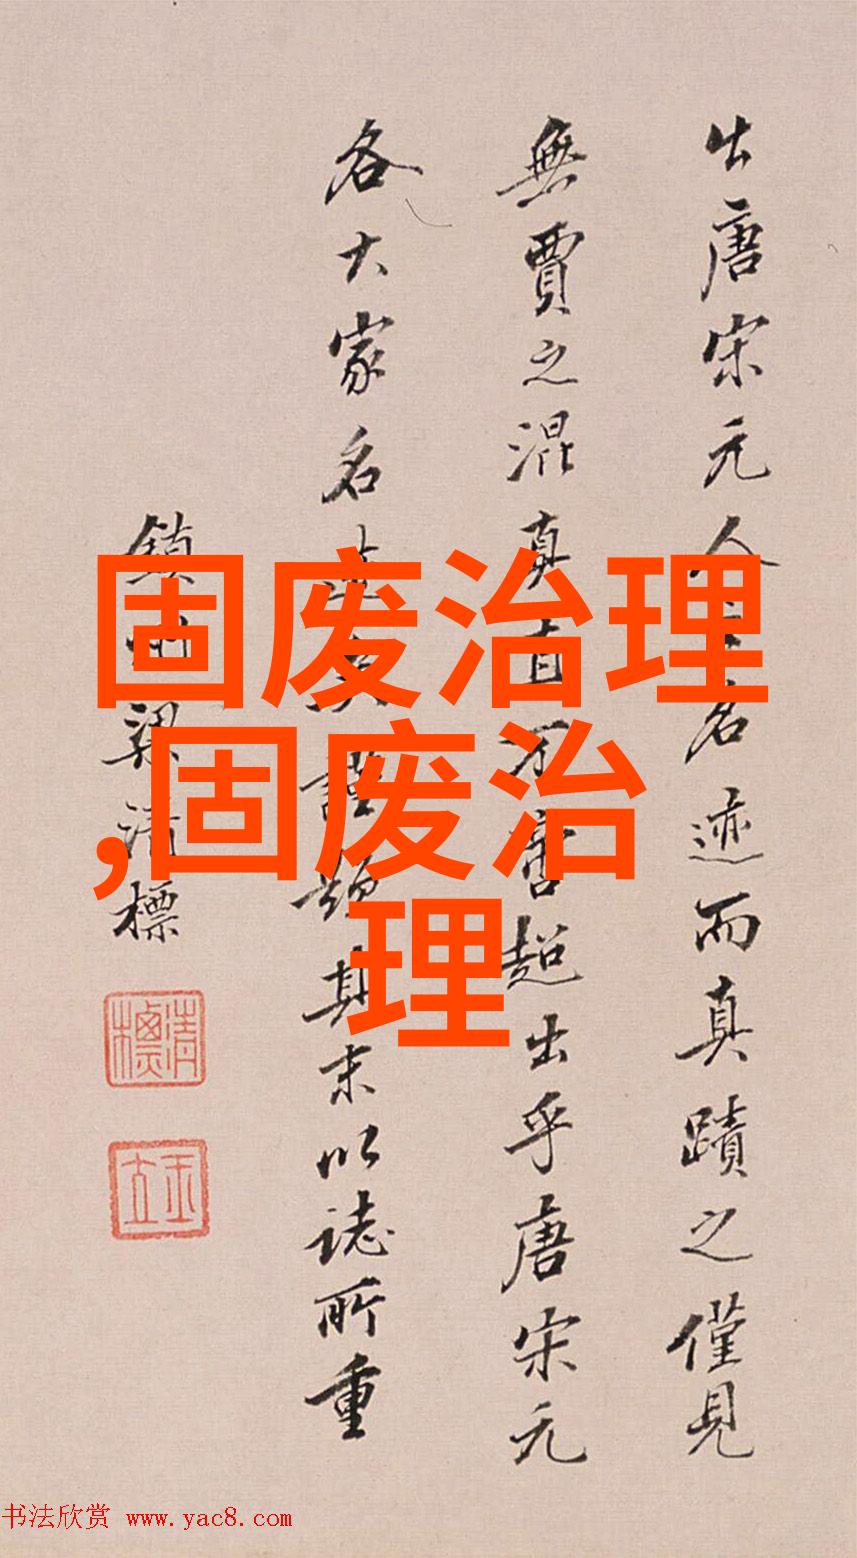 出唐宋元人名迹而真蹟之僅見
無賈之混真直不啻超出乎唐宋元
各大家名謹題其末以誌所重
鎮州梁清標
清標
玉立
固废治理
,固废治
理
书法欣赏 www.yac8.com